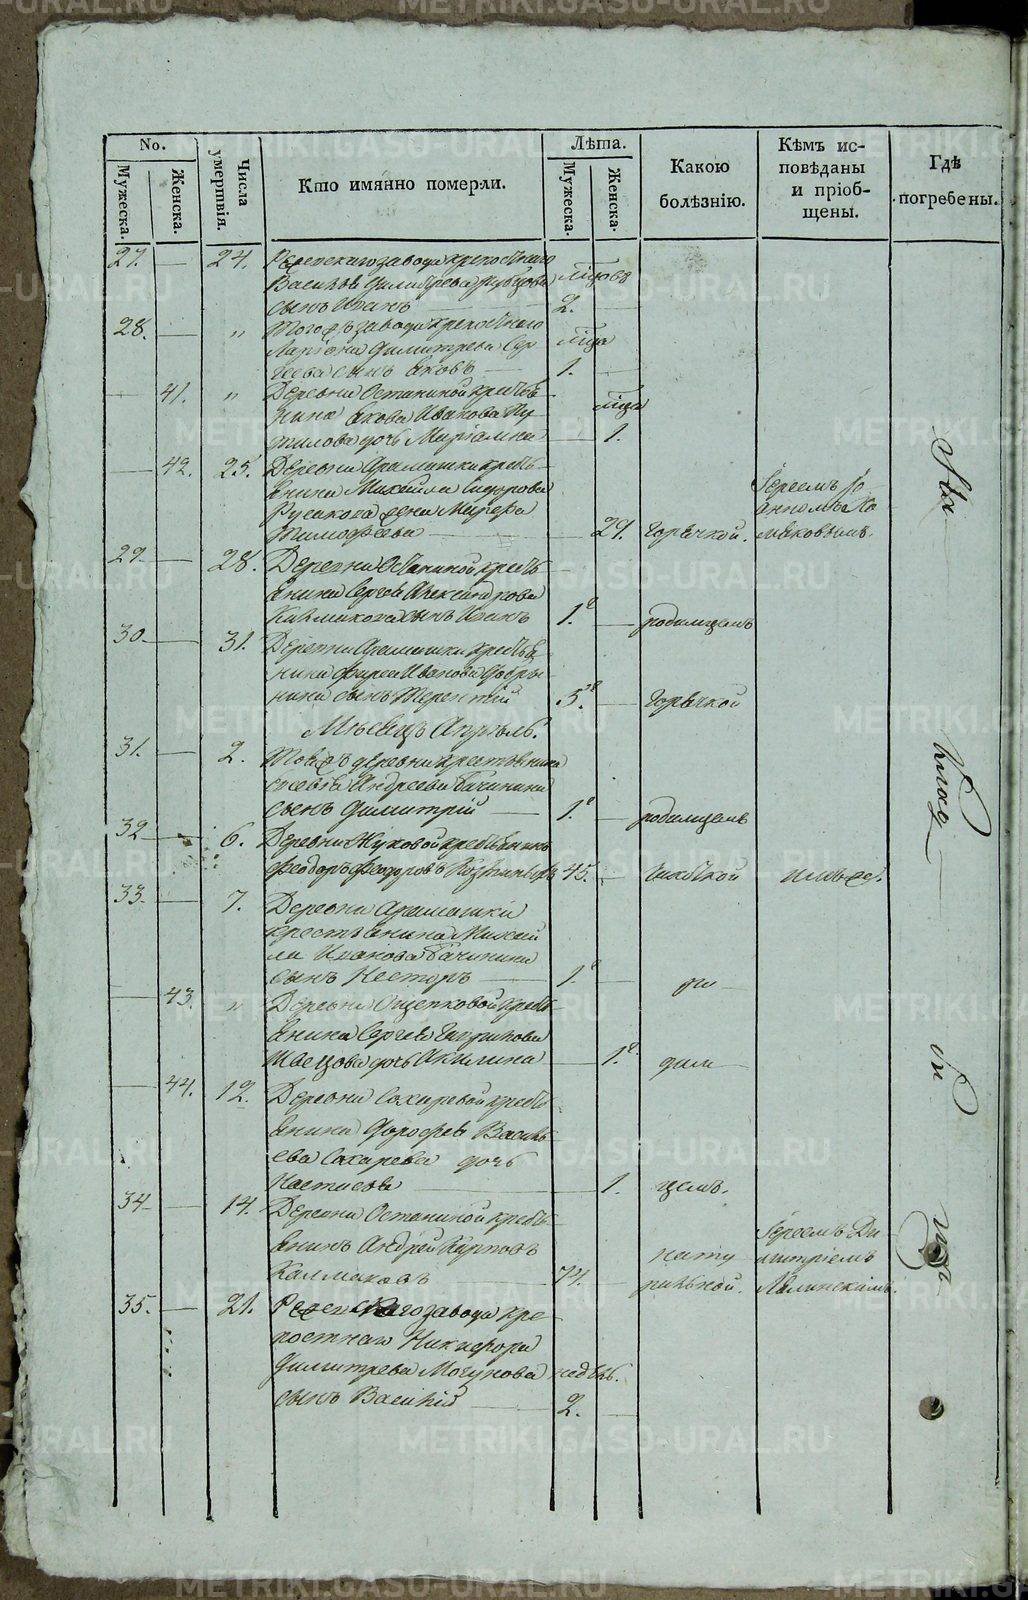 No.
Мужеска.
Женска.
Числа умертвія.
Кто имянно померли.
Лѣта.
Мужеска.
Женска.
Какою болѣзнію.
Кѣмъ ис-
повѣданы
и пріоб-
щены.
Гдѣ погребены.
27. 24. завода крепостнаго
Василья Димитрева
сынъ Иванъ 2.
28. " Того жъ завода крепостнаго
Ларіона Димитрева Сер
геева сынъ Яковъ 1.
41. " Деревни Останиной кресть
янина Якова Иванова Пу
тилова дочь Маріамна 1.
42. 25. Деревни Арамашки кресть
янина Михаила Сидорова
Русакова жена
Тимофеева 29. Горячкой.
Іереемъ Іо
анномъ Хо
мяковымъ.
29. 28. Деревни Останиной кресть
янина Сергея Александрова
Калмакова сынъ Иванъ 1. родимцемъ
30. 31. Деревни Арамашки крестья
нина Иванова
сынъ Терентій 5. Горячкой
Мѣсецъ Апрѣль.
31. 2. Той жъ деревни крестьянина
Андреева Бачинина
сынъ Димитрій 1. родимцемъ
32. 6. Деревни Жуковой крестьянинъ
Феодоръ Феодоровъ 45. чахоткой имъ же.
33. 7. Деревни Арамашки
крестьянина Михаи
ла Иванова Бачинина
сынъ Несторъ 1. ро
43. " Деревни Ощепковой кресть
янина Сергея
Швецова дочь Акилина 1. дим
44. 12. Деревни Сохаревой кресть
янина Дорофея Василь
ева Сохарева дочь
Настасья 1. цемъ.
34. 14. Деревни Останиной кресть
янинъ Андрей Карповъ
Калмаковъ 74. нату
ральной.
Іереемъ Ди
митріемъ
Ляпинскимъ.
35. 21. завода кре
постнаго Никифора
Димитрева Могунова недѣль.
сынъ Василій 2.
На
клад
би
щѣ
METRIKI.GASO-URAL.RU